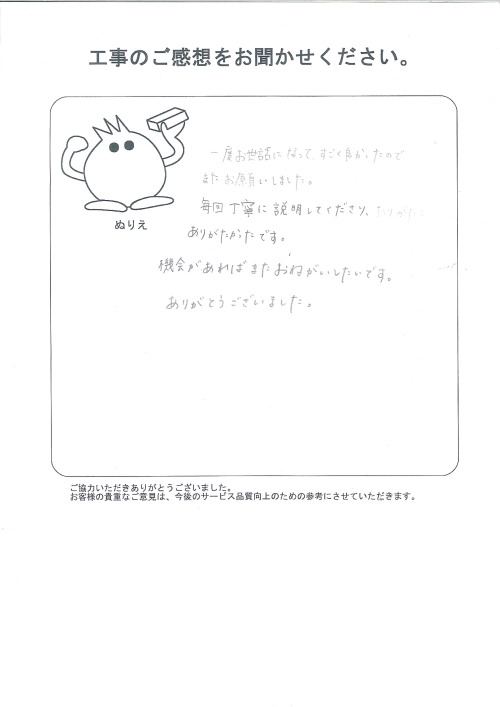 工事のご感想をお聞かせください。
一度お世話になって、すごく良かったので
またお願いしました。
ぬりえ
毎回丁寧に説明してくださり、
ありがたかったです。
機会があればまたおねがいしたいです。
ありがとうございました。
ご協力いただきありがとうございました。
お客様の貴重なご意見は、今後のサービス品質向上のための参考にさせていただきます。